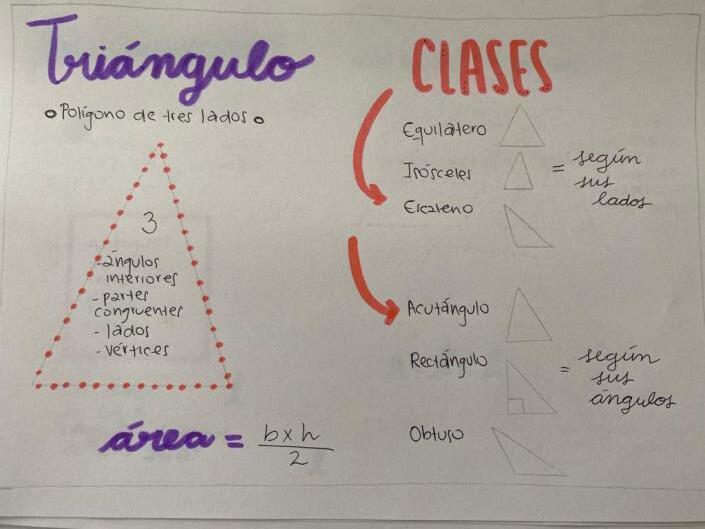 Triángulo
Polígono de tres lados
3
-ángulos
interiores
-partes
congruentes
-lados
-vértices
área = b x h
2
CLASES
Equilátero
Isósceles
Escaleno
= según
sus
lados
Acutángulo
Rectángulo
Obtuso
= según
sus
ángulos